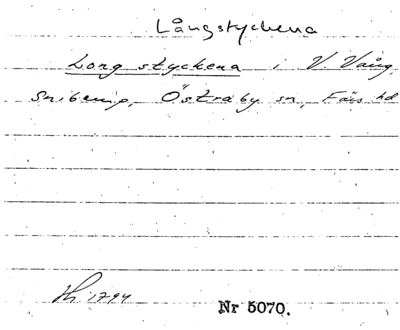 Långstyckena
Long styckena i V. Vång,
Snibemp, Östraby sn, Färs hd
Hh 1794
Nr 5070.